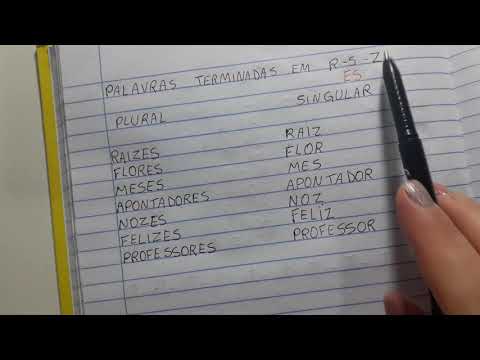 PALAVRAS TERMINADAS EM R-S-Z
ES
PLURAL SINGULAR
RAIZES RAIZ
FLORES FLOR
MESES MES
APONTADORES APONTADOR
NOZES NOZ
FELIZES FELIZ
PROFESSORES PROFESSOR